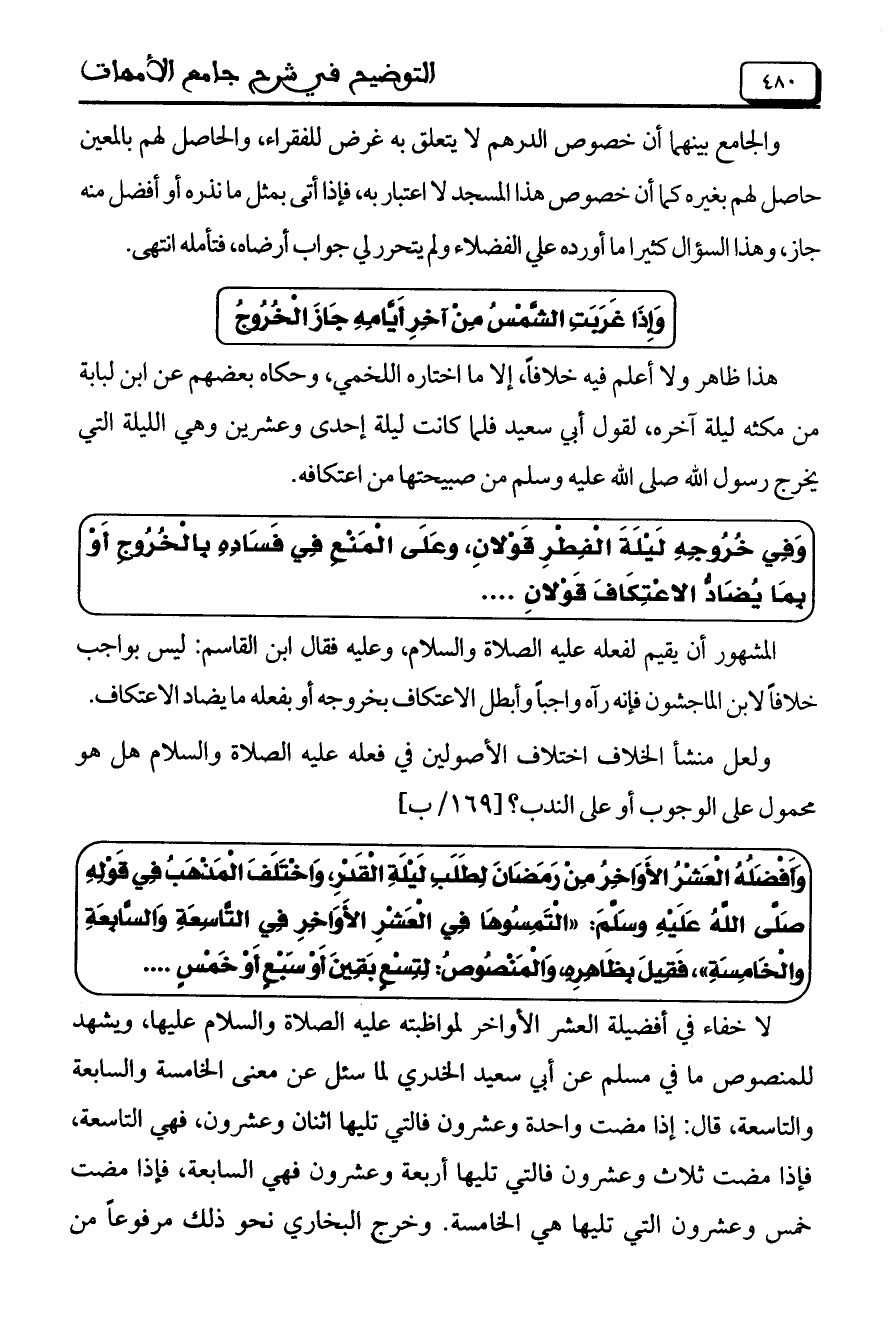 ٤٨٠
التوضيح في شرح جامع الأمهات
والجامع بينهما أن خصوص الدرهم لا يتعلق به غرض للفقراء، والحاصل لهم بالمعين
حاصل لهم بغيره كما أن خصوص هذا المسجد لا اعتبار به، فإذا أتى بمثل ما نذره أو أفضل منه
جاز، وهذا السؤال كثيرا ما أورده علي الفضلاء ولم يتحرر لي جواب أرضاه، فتأمله انتهى.
وَإِذَا غَرَبَتِ الشَّمْسُ مِنْ آخِرِ أَيَّامِهِ جَازَ الْخُرُوجُ
هذا ظاهر ولا أعلم فيه خلافاً، إلا ما اختاره اللخمي، وحكاه بعضهم عن ابن لبابة
من مكثه ليلة آخره، لقول أبي سعيد فلما كانت ليلة إحدى وعشرين وهي الليلة التي
يخرج رسول الله صلى الله عليه وسلم من صبيحتها من اعتكافه.
وَفِي خُرُوجِهِ لَيْلَةَ الْفِطْرِ قَوْلانِ، وعَلَى الْمَنْعِ فِي فَسَادِهِ بِالْخُرُوجِ أَوْ
بِمَا يُضَادُّ الاعْتِكَافَ قَوْلانِ ....
المشهور أن يقيم لفعله عليه الصلاة والسلام، وعليه فقال ابن القاسم: ليس بواجب
خلافاً لابن الماجشون فإنه رآه واجباً وأبطل الاعتكاف بخروجه أو بفعله ما يضاد الاعتكاف.
ولعل منشأ الخلاف اختلاف الأصولين في فعله عليه الصلاة والسلام هل هو
محمول على الوجوب أو على الندب؟ [١٦٩/ ب]
وأَفْضَلُهُ الْعَشْرُ الأَوَاخِرُ مِنْ رَمَضَانَ لِطَلَبِ لَيْلَةِ الْقَدْرِ، وَاخْتَلَفَ الْمَذْهَبُ فِي قَوْلِهِ
صَلَّى اللَّهُ عَلَيْهِ وسَلَّمَ: «الْتَمِسُوهَا فِي الْعَشْرِ الأَوَاخِرِ فِي التَّاسِعَةِ وَالسَّابِعَةِ
والْخَامِسَةِ»، فَقِيلَ بِظَاهِرِهِ، وَالْمَنْصُوصُ: لِتِسْعٍ بَقِينَ أَوْ سَبْعٍ أَوْ خَمْسٍ ....
لا خفاء في أفضيلة العشر الأواخر لمواظبته عليه الصلاة والسلام عليها، ويشهد
للمنصوص ما في مسلم عن أبي سعيد الخدري لما سئل عن معنى الخامسة والسابعة
والتاسعة، قال: إذا مضت واحدة وعشرون فالتي تليها اثنان وعشرون، فهي التاسعة،
فإذا مضت ثلاث وعشرون فالتي تليها أربعة وعشرون فهي السابعة، فإذا مضت
خمس وعشرون التي تليها هي الخامسة. وخرج البخاري نحو ذلك مرفوعاً من